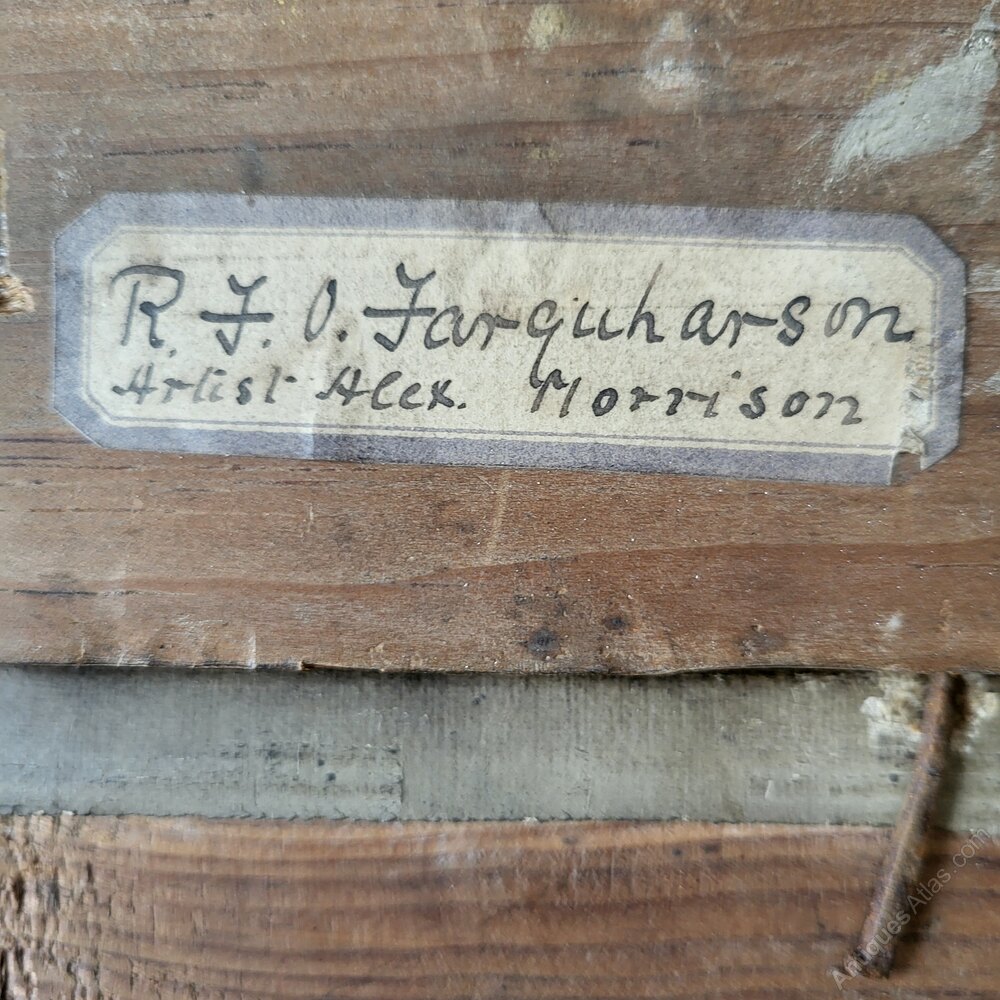 R. F. O. Farquharson
Artist Alex. Morrison
Antiques Atlas.com